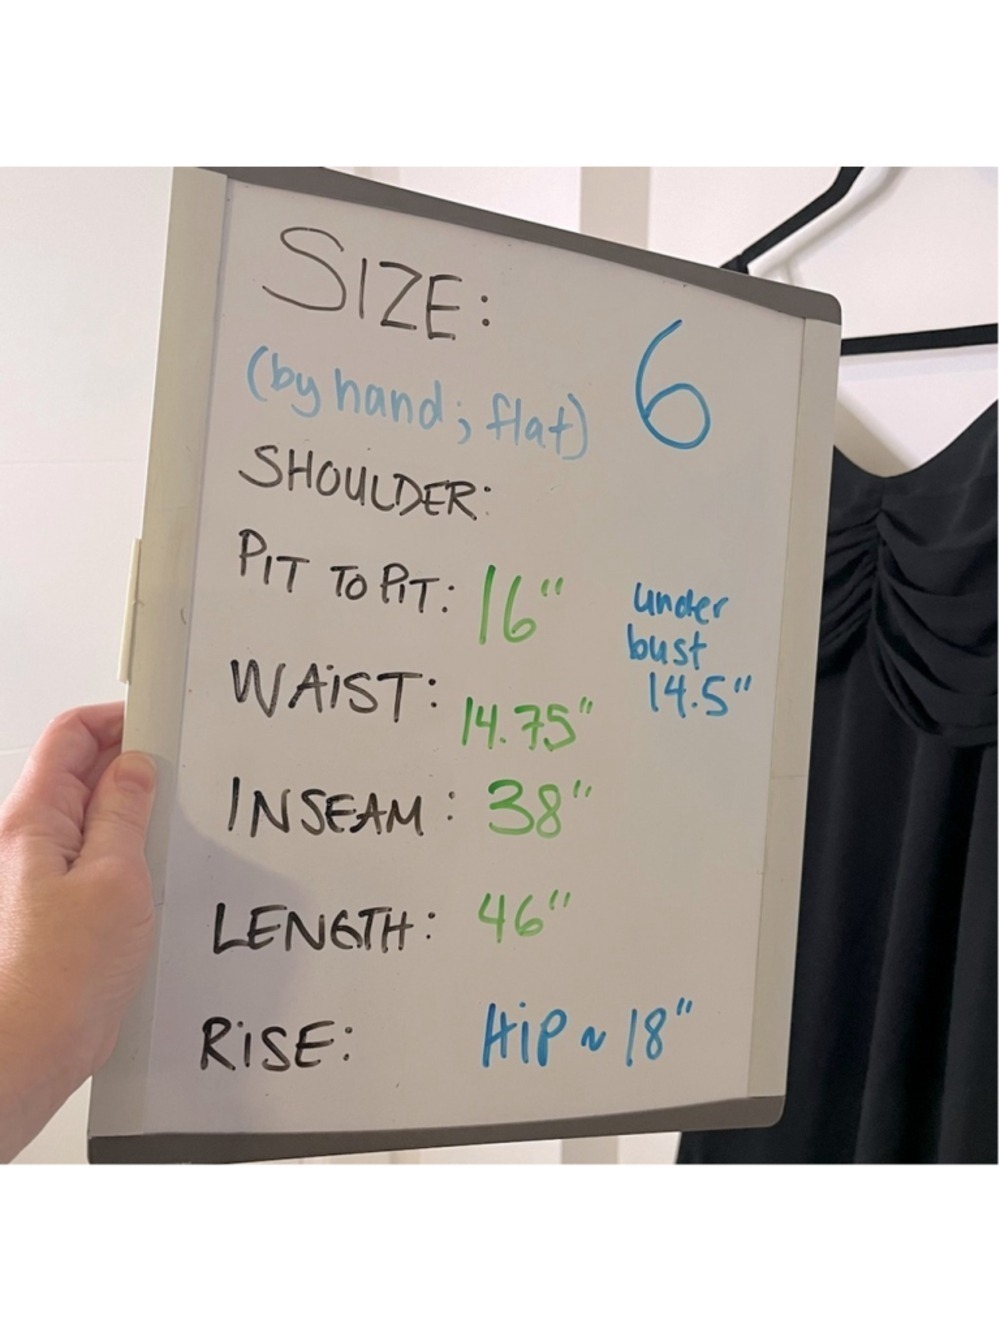 SIZE: 6
(by hand; flat)
SHOULDER:
PIT TO PIT: 16"
under
bust
14.5"
WAIST: 14.75"
INSEAM: 38"
LENGTH: 46"
RISE: Hip ~ 18"